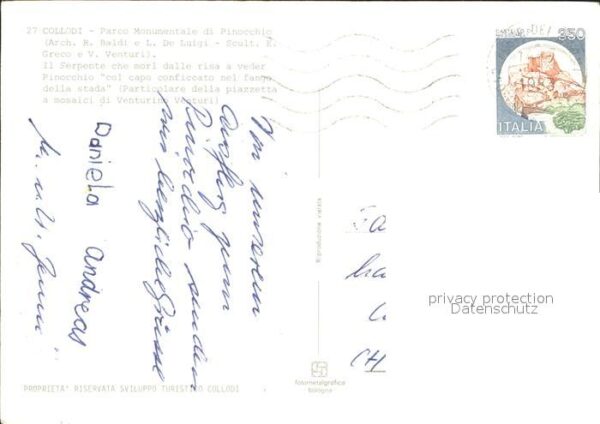 27 COLLODI - Parco Monumentale di Pinocchio
(Arch. R. Baldi e L. De Luigi - Scult. E.
Greco e V. Venturi).
Il Serpente che morì dalle risa a veder
Pinocchio "col capo conficcato nel fango
della stada" (Particolare della piazzetta
a mosaici di Venturino Venturi)
Von unserem
Ausflug zum
Pinocchio senden
wir herzliche Grüsse
Daniela Andreas
PROPRIETA' RISERVATA SVILUPPO TURISTICO COLLODI
Riproduzione vietata
fotometalgrafica
bologna
350
ITALIA
CH
privacy protection
Datenschutz